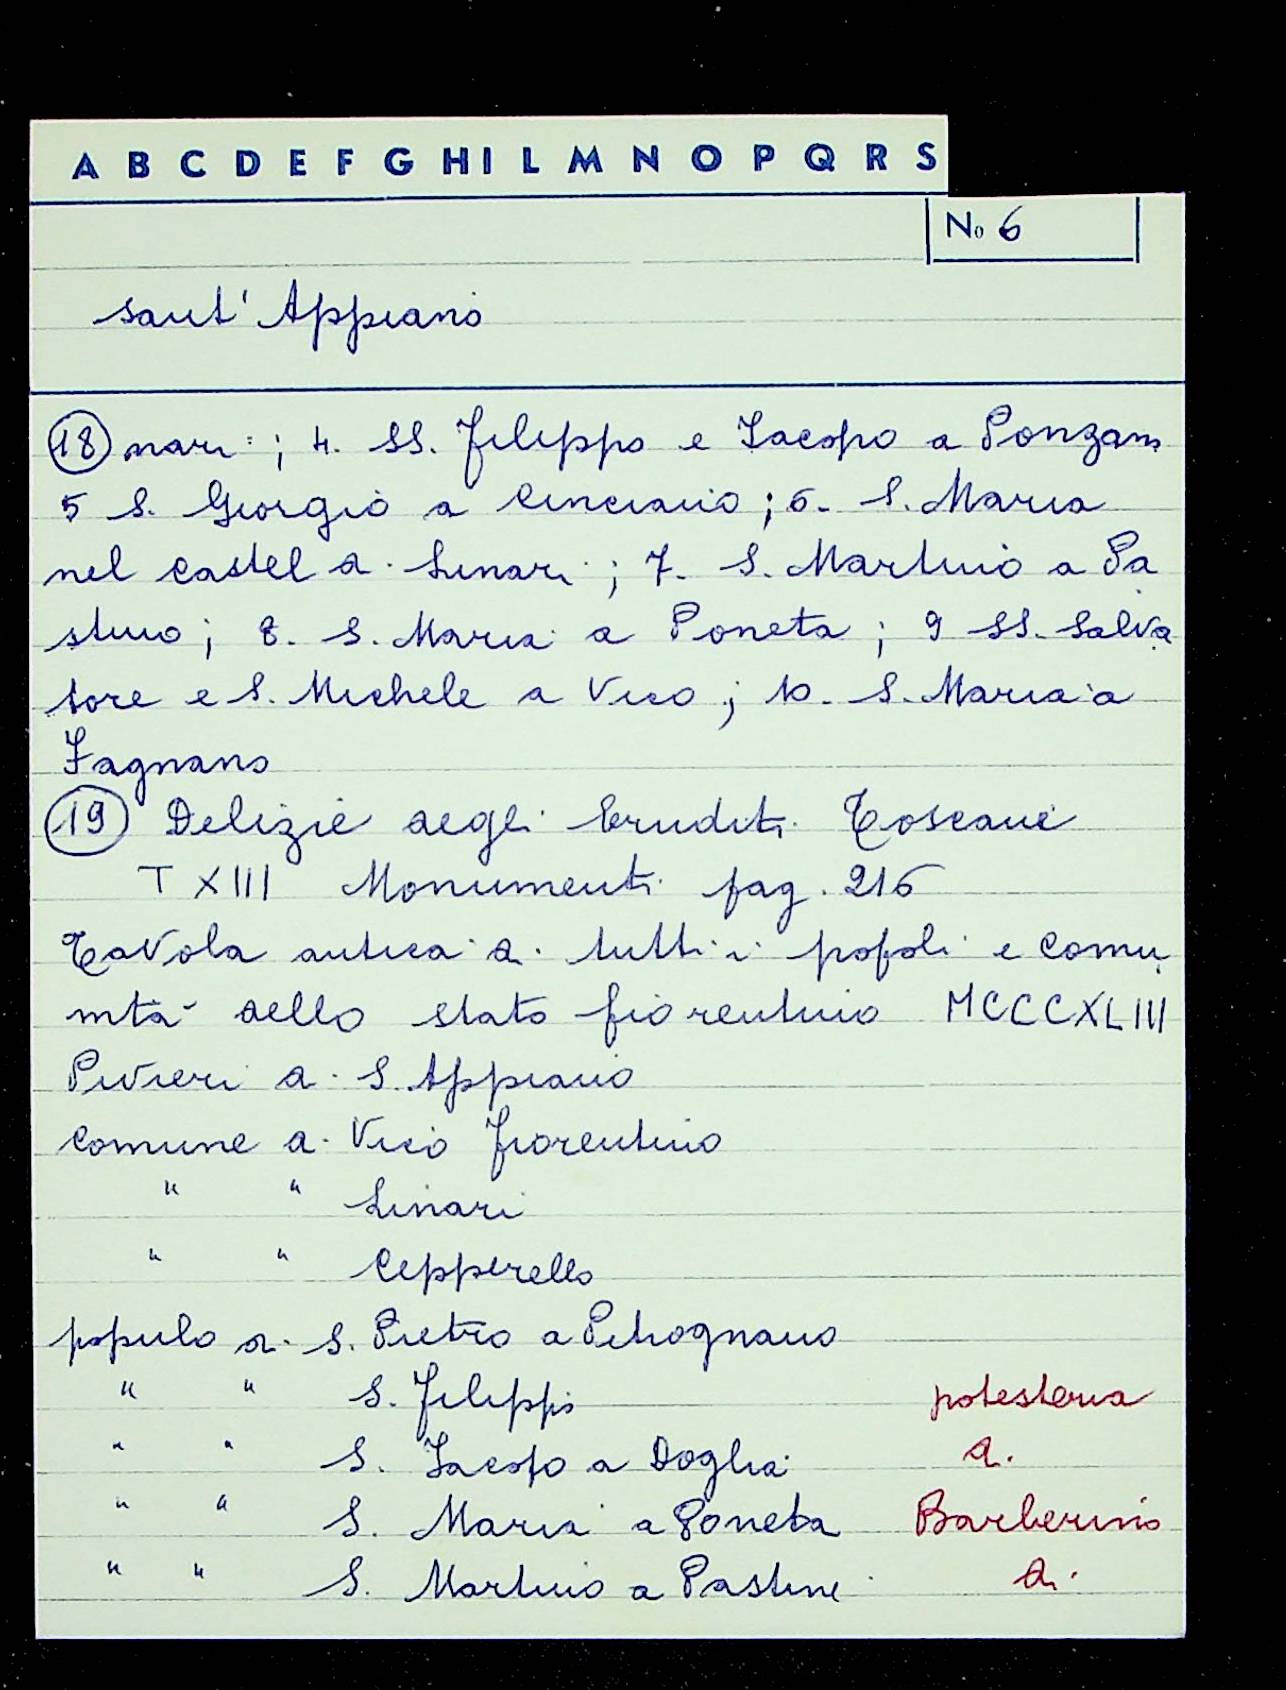 A B C D E F G H I L M N O P Q R S
No 6
sant' Appiano
18 nari ; 4. SS. Filippo e Iacopo a Ponzano
5 S. Giorgio a Cinciano ; 6. S. Maria
nel castel di Linari ; 7. S. Martino a Pa
stino ; 8. S. Maria a Poneta ; 9 SS. Salva
tore e S. Michele a Vico ; 10. S. Maria a
Fagnano
19 Delizie degli Eruditi Toscani
T XIII Monumenti pag. 216
Tavola antica di tutti i popoli e comu
nità dello stato fiorentino MCCCXLIII
Pivieri di S. Appiano
Comune di Vico fiorentino
" " Linari
" " Cepperello
populo di S. Pietro a Petrognano
" " S. Filippo
potesteria
" " S. Iacopo a Doglia
di
" " S. Maria a Poneta
Barberino
" " S. Martino a Pastine
di